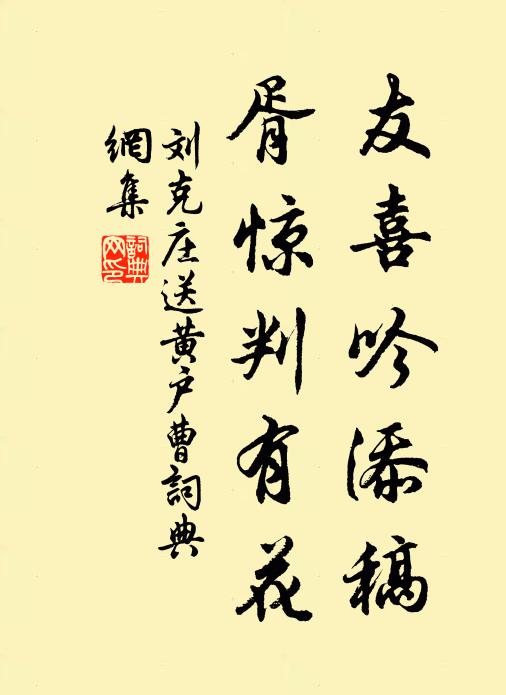 友喜吟添稿
胥惊判有花
刘克庄送黄户曹詞典
網集
詞典
网印